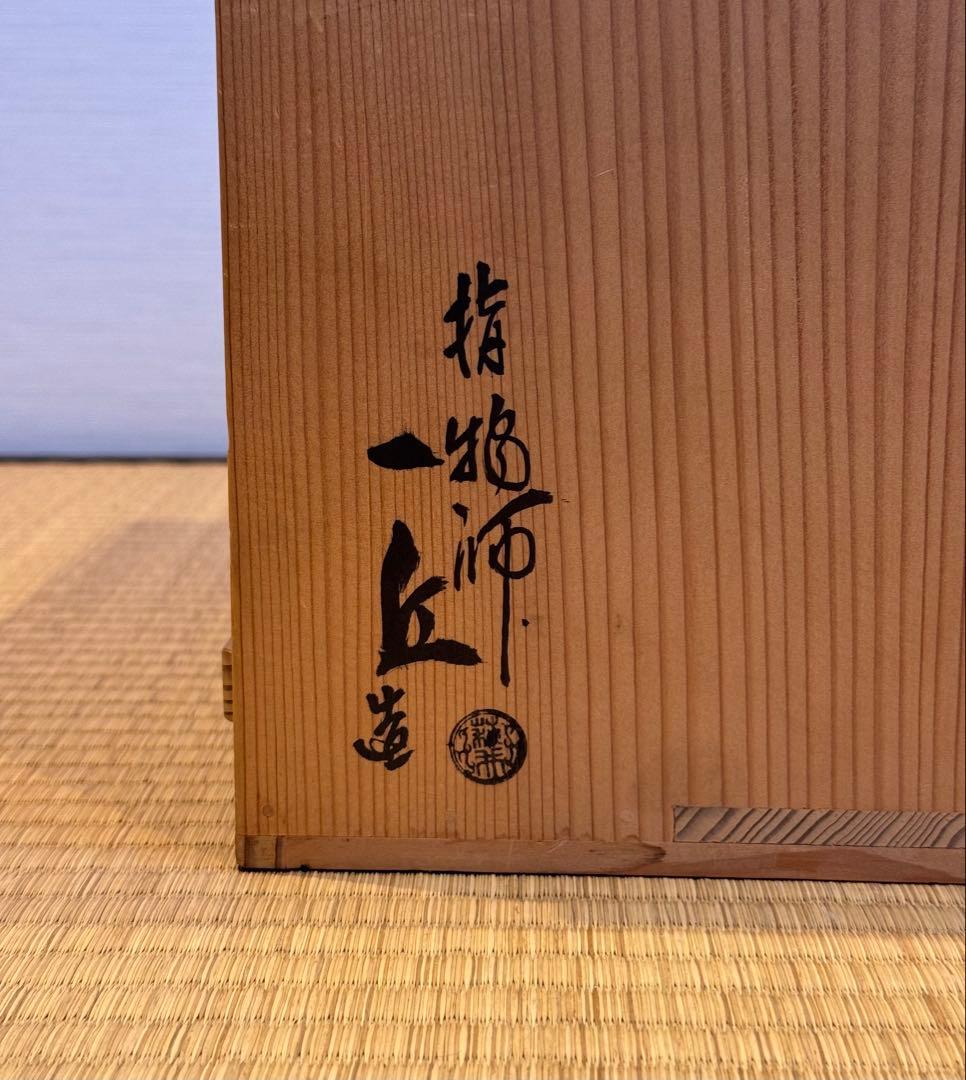 指物師
一丘造